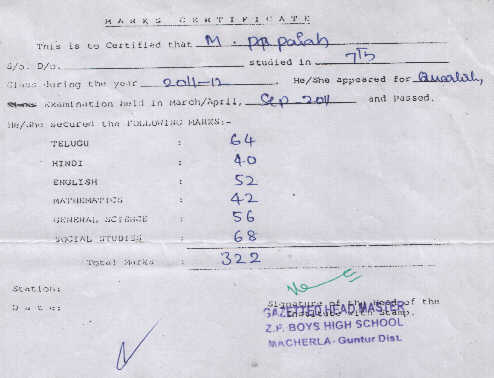 MARKS CERTIFICATE
This is to Certified that M. PA paiah
S/o. D/o. studied in 7th
Class during the year 2011-12 He/She appeared for
Examination held in March/April, Sep 2011 and Passed.
He/She secured the FOLLOWING MARKS:-
TELUGU : 64
HINDI : 40
ENGLISH : 52
MATHEMATICS : 42
GENERAL SCIENCE : 56
SOCIAL STUDIES : 68
Total Marks : 322
Station:
Date:
Signature of the Head of the
Institute with Stamp.
GAZETTED HEAD MASTER
Z.P. BOYS HIGH SCHOOL
MACHERLA - Guntur Dist.